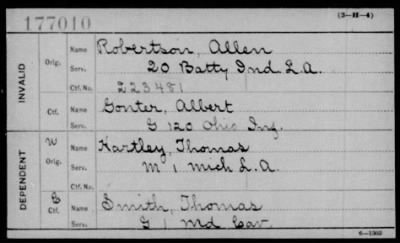 177010
(3-H-4)
INVALID
Orig.
Name Robertson, Allen
Serv. 20 Batty Ind L.A.
Ctf. No. 223481
Ctf.
Name Gonter, Albert
Serv. G 120 Ohio Inf.
DEPENDENT
W
Orig.
Name Hartley, Thomas
Serv. M 1 Mich L.A.
Ctf. No.
Ctf.
Name Smith, Thomas
Serv. G 1 Md Cav.
6-1303